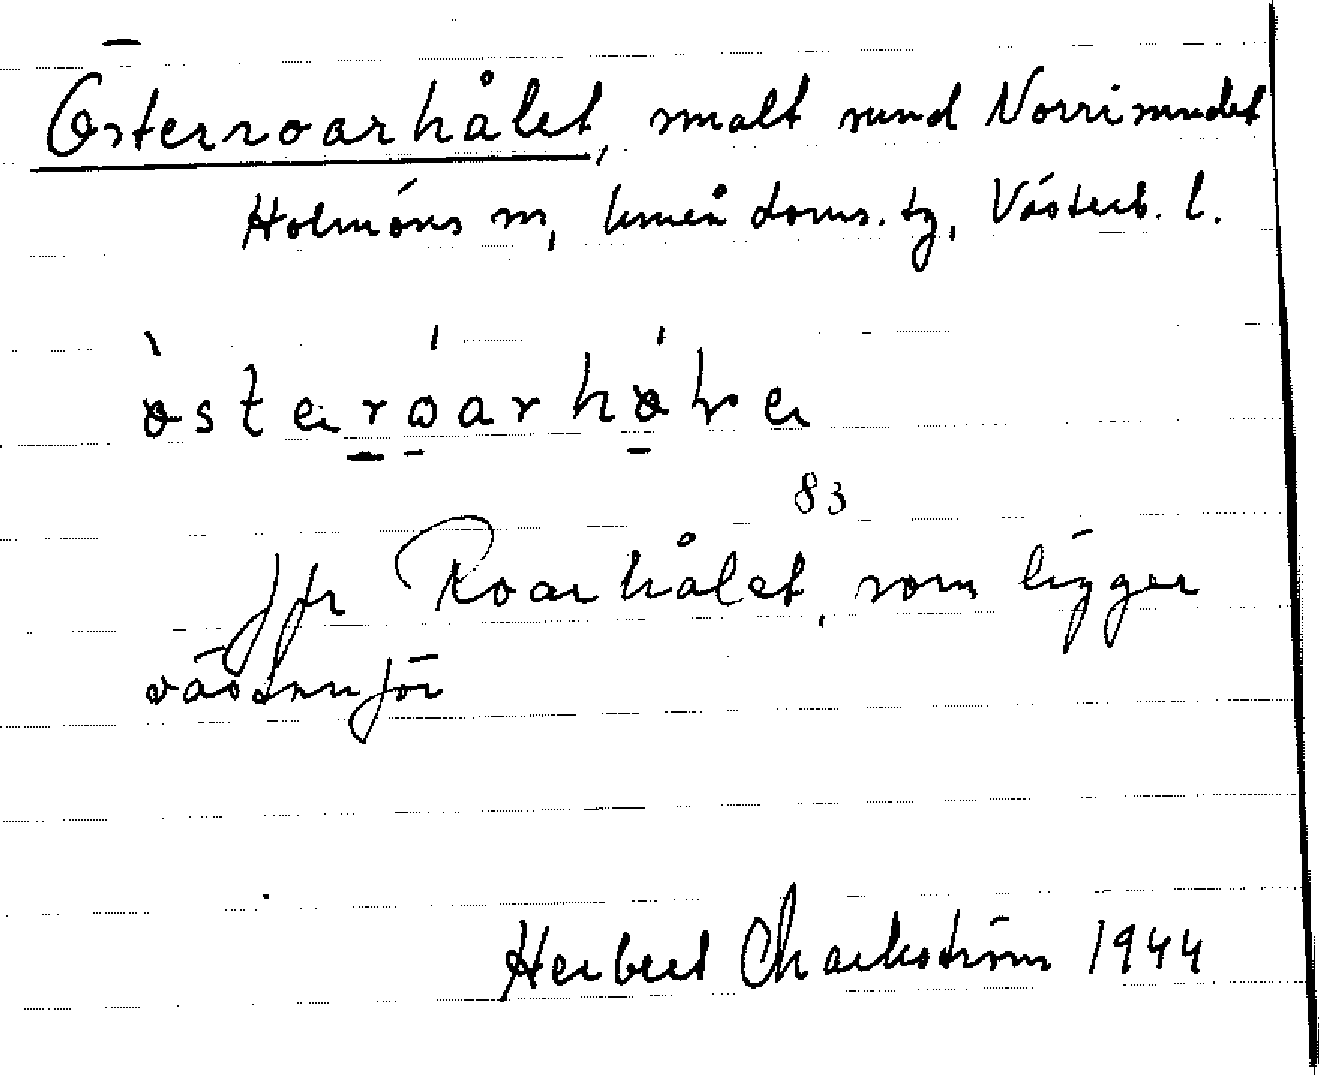 Österroarhålet, smalt sund Norrisundet
Holmöns sn, Umeå doms. tg, Västerb. l.
83
Jfr Roarhålet, som ligger
västanför
Herbert Charlsström 1944